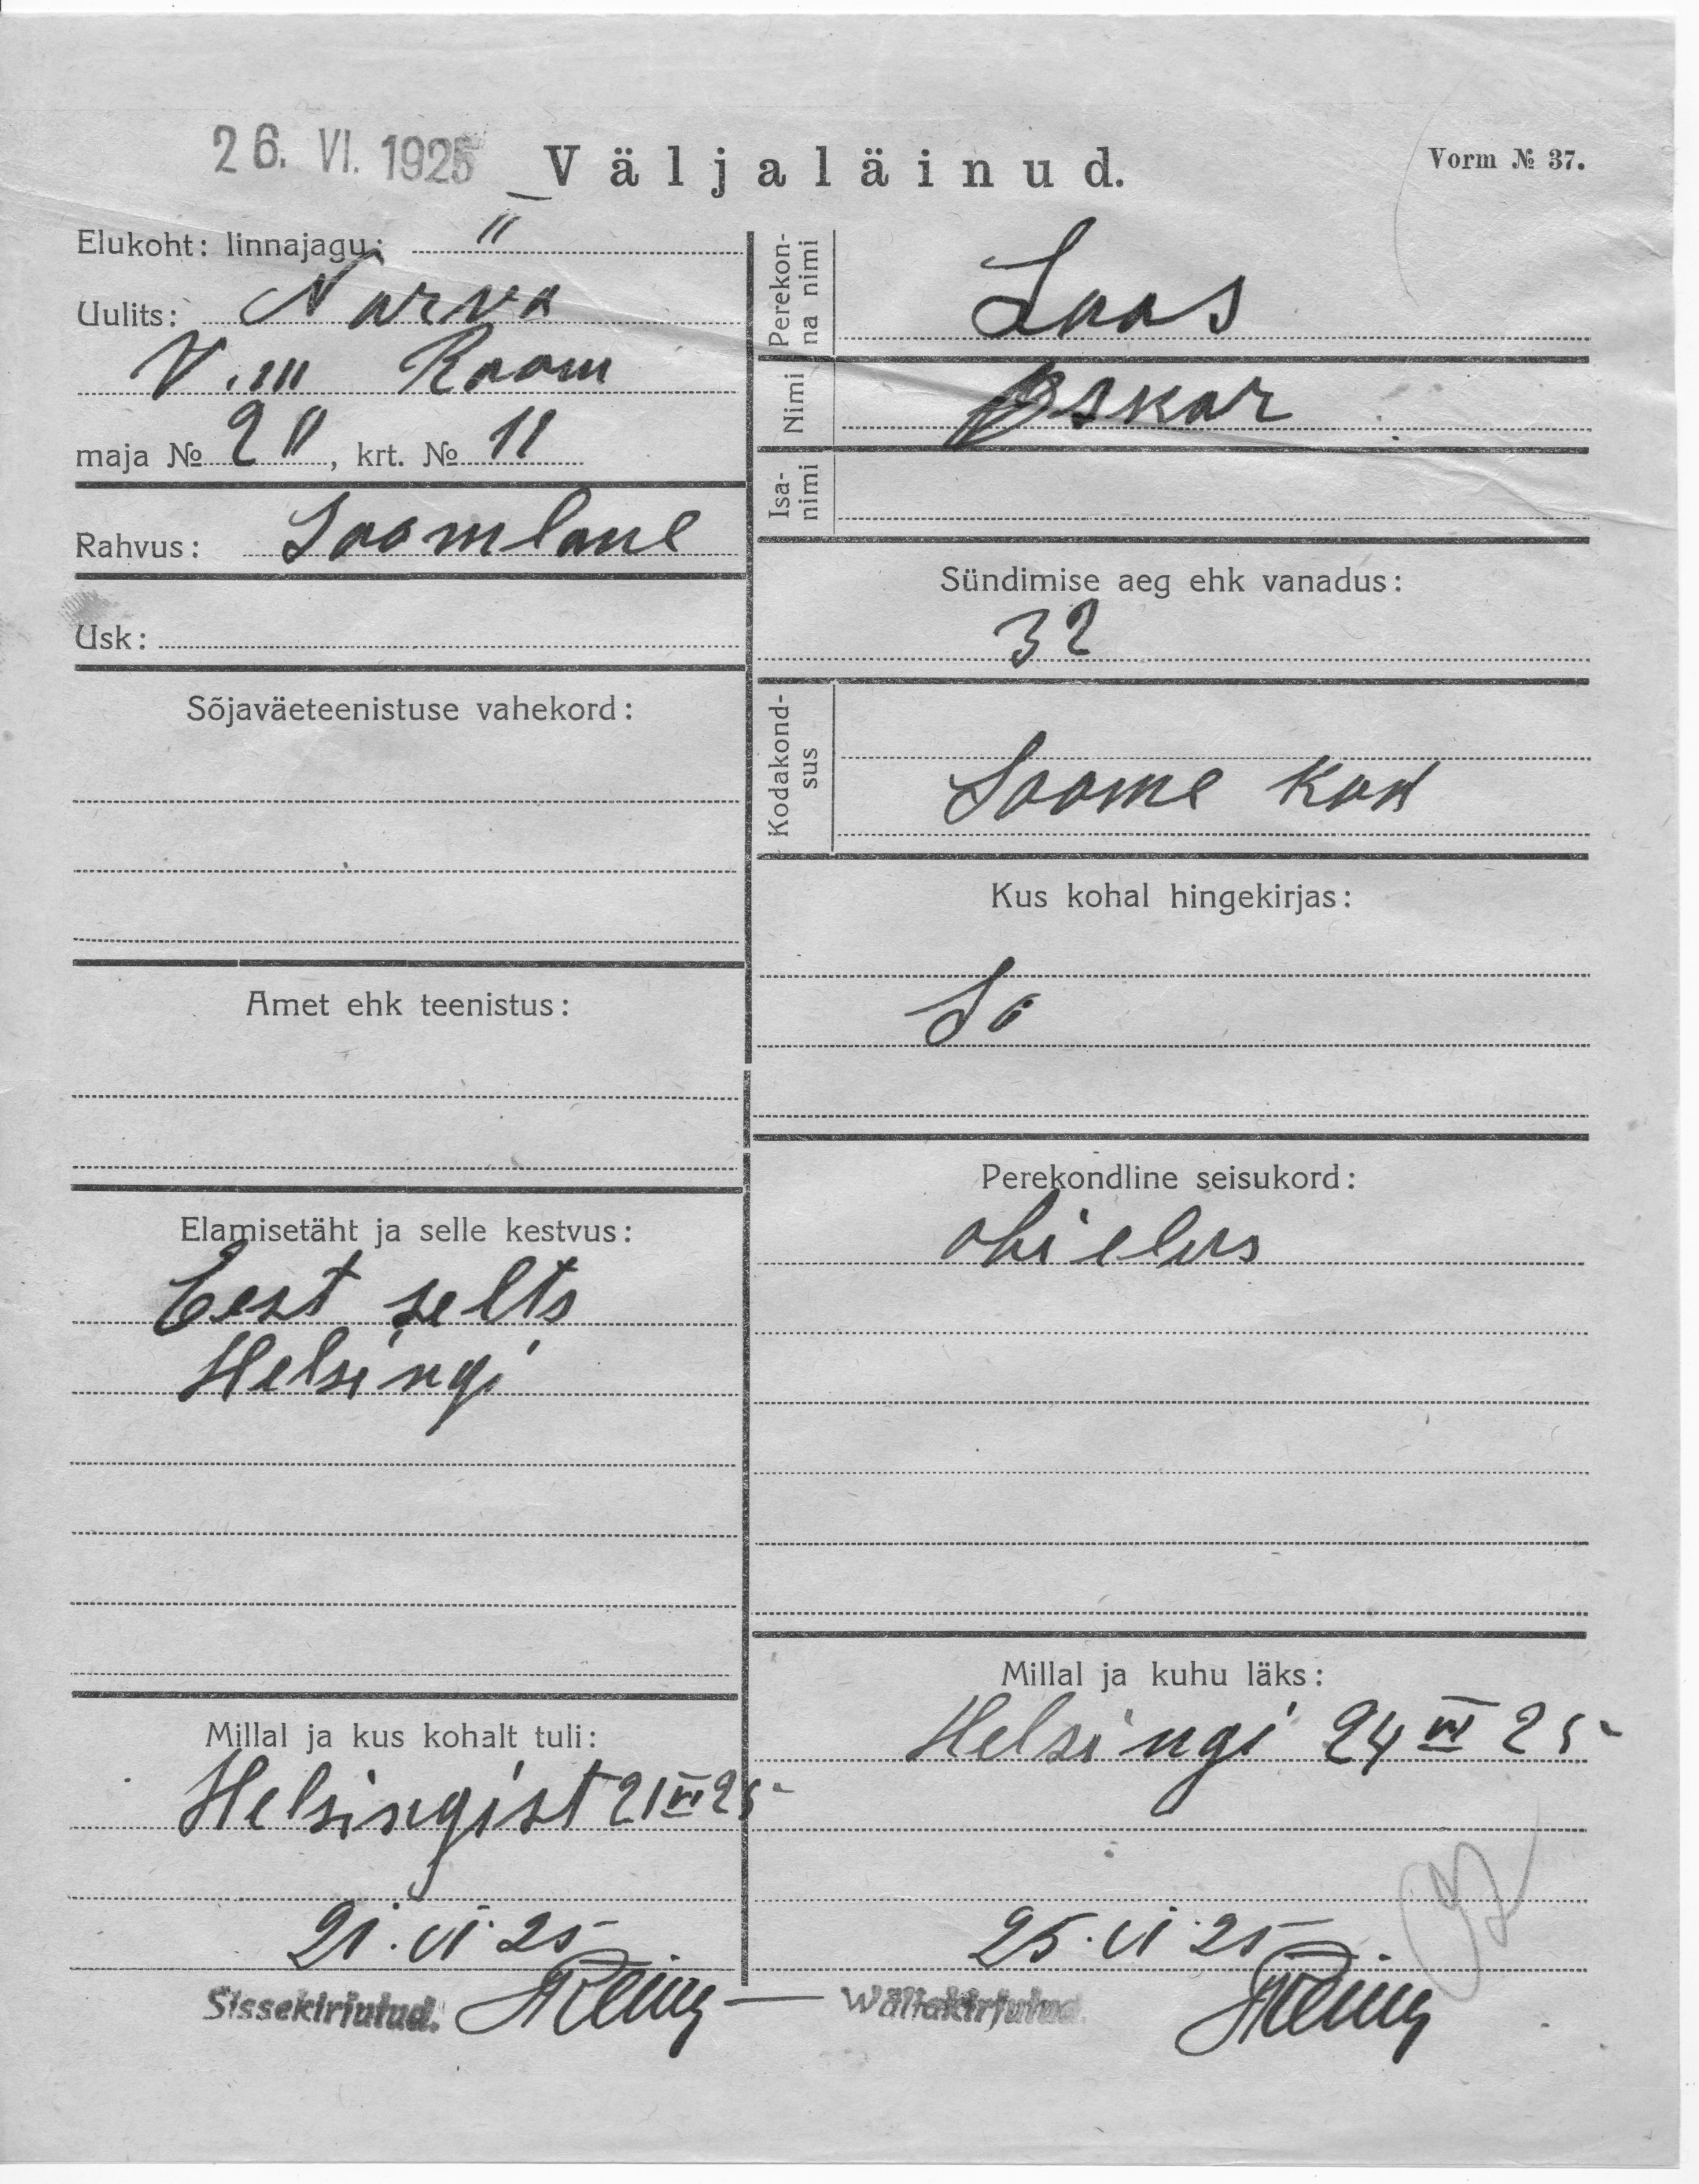 26. VI. 1925
Väljaläinud.
Vorm № 37.
Elukoht: linnajagu: II
Uulits: Narva
V. III Raam
maja № 20, krt. № 11
Rahvus: Soomlane
Usk:
Sõjaväeteenistuse vahekord:
Amet ehk teenistus:
Elamisetäht ja selle kestvus:
Eest selts
Helsingi
Millal ja kus kohalt tuli:
Helsingist 21 VI 25
21. VI 25
Sissekirjutud.
Perekonna nimi
Laas
Nimi
Oskar
Isanimi
Sündimise aeg ehk vanadus:
32
Kodakondsus
Soome Kod
Kus kohal hingekirjas:
Perekondline seisukord:
abielus
Millal ja kuhu läks:
Helsingi 24 VI 25
25. VI 25
Wäljakirjutud.